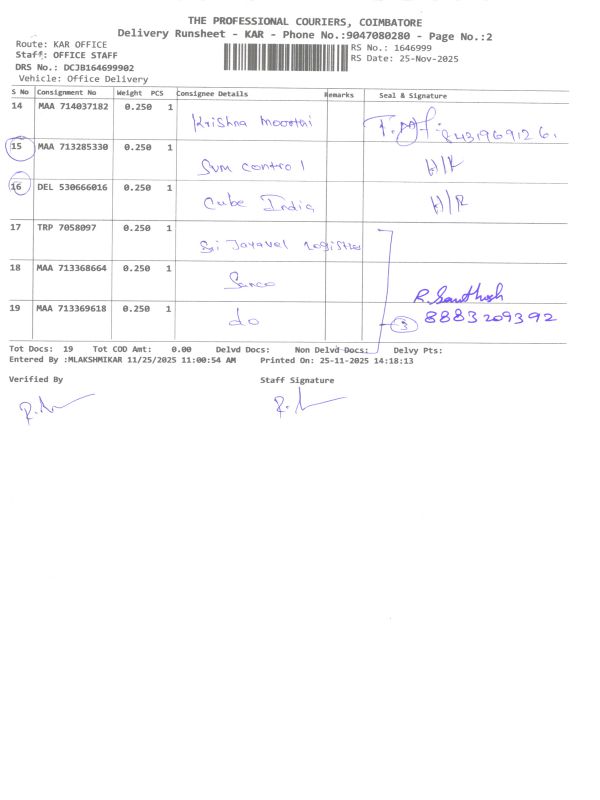 THE PROFESSIONAL COURIERS, COIMBATORE
Delivery Runsheet - KAR - Phone No.:9047080280 - Page No.:2
Route: KAR OFFICE RS No.: 1646999
Staff: OFFICE STAFF RS Date: 25-Nov-2025
DRS No.: DCJB164699902
Vehicle: Office Delivery
S No Consignment No Weight PCS Consignee Details Remarks Seal & Signature
14 MAA 714037182 0.250 1
Krishna Moorthi 8431969126
15 MAA 713285330 0.250 1
Svm control H/R
16 DEL 530666016 0.250 1
Cube India H/R
17 TRP 7058097 0.250 1
Sri Jayavel Logistics
18 MAA 713368664 0.250 1
Senco R. Santhosh
19 MAA 713369618 0.250 1
do 3 8883209392
Tot Docs: 19 Tot COD Amt: 0.00 Delvd Docs: Non Delvd Docs: Delvy Pts:
Entered By :MLAKSHMIKAR 11/25/2025 11:00:54 AM Printed On: 25-11-2025 14:18:13
Verified By Staff Signature